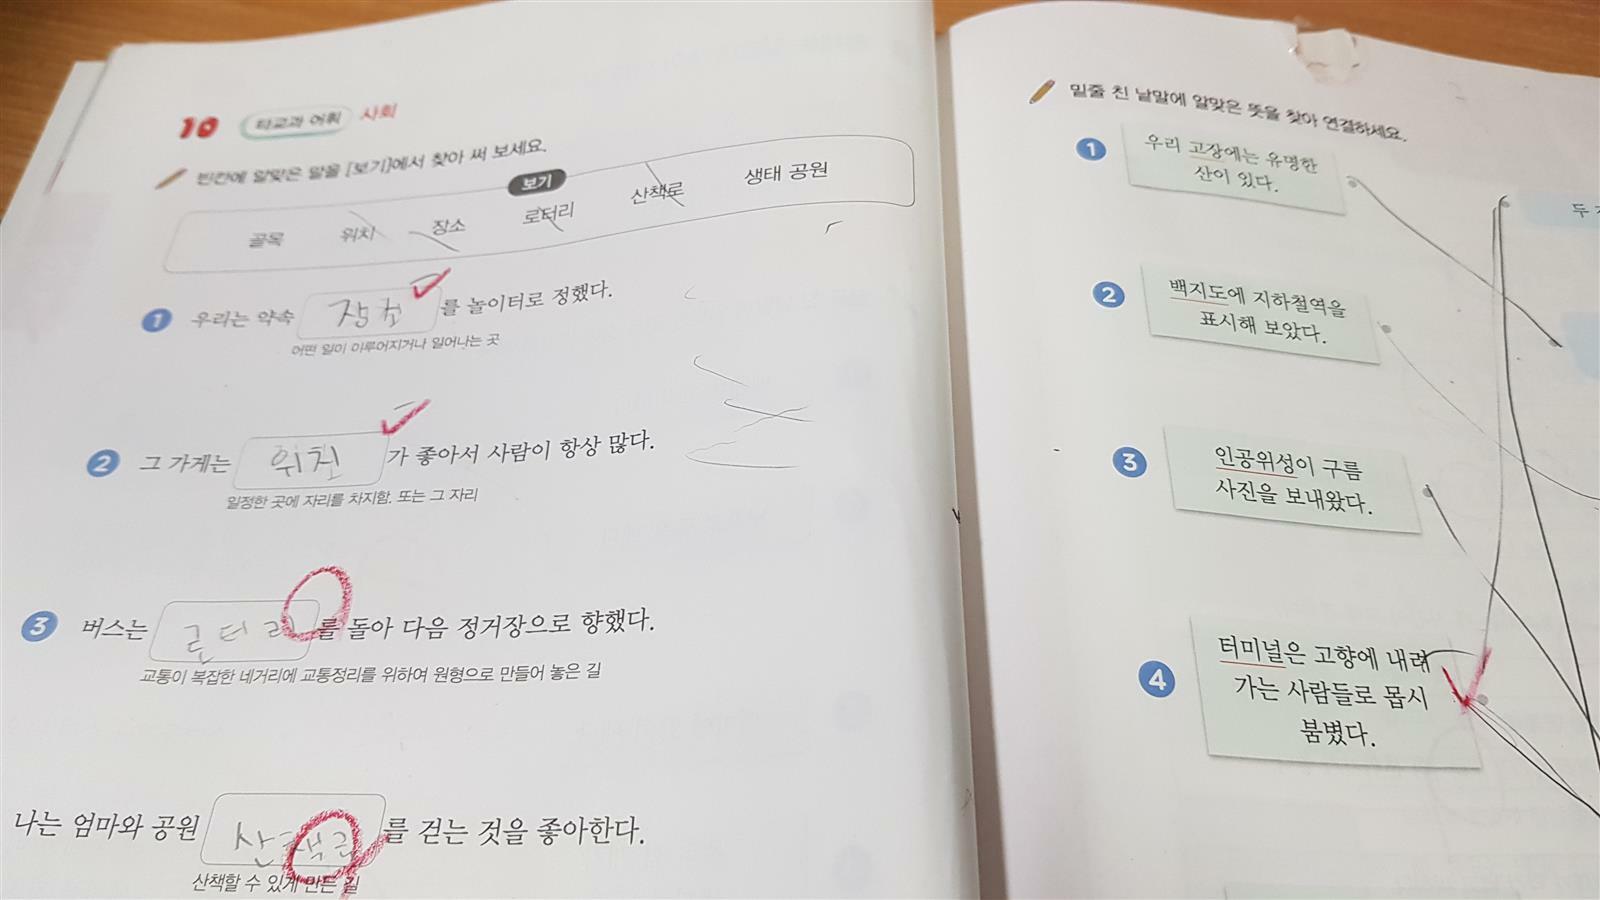 10 타교과 어휘 사회
빈칸에 알맞은 말을 [보기]에서 찾아 써 보세요.
보기
골목 위치 장소 로터리 산책로 생태 공원
1 우리는 약속 장소 를 놀이터로 정했다.
어떤 일이 이루어지거나 일어나는 곳
2 그 가게는 위치 가 좋아서 사람이 항상 많다.
일정한 곳에 자리를 차지함. 또는 그 자리
3 버스는 로터리 를 돌아 다음 정거장으로 향했다.
교통이 복잡한 네거리에 교통정리를 위하여 원형으로 만들어 놓은 길
나는 엄마와 공원 산책로 를 걷는 것을 좋아한다.
산책할 수 있게 만든 길
밑줄 친 낱말에 알맞은 뜻을 찾아 연결하세요.
1 우리 고장에는 유명한
산이 있다.
두
2 백지도에 지하철역을
표시해 보았다.
3 인공위성이 구름
사진을 보내왔다.
4 터미널은 고향에 내려
가는 사람들로 몹시
붐볐다.